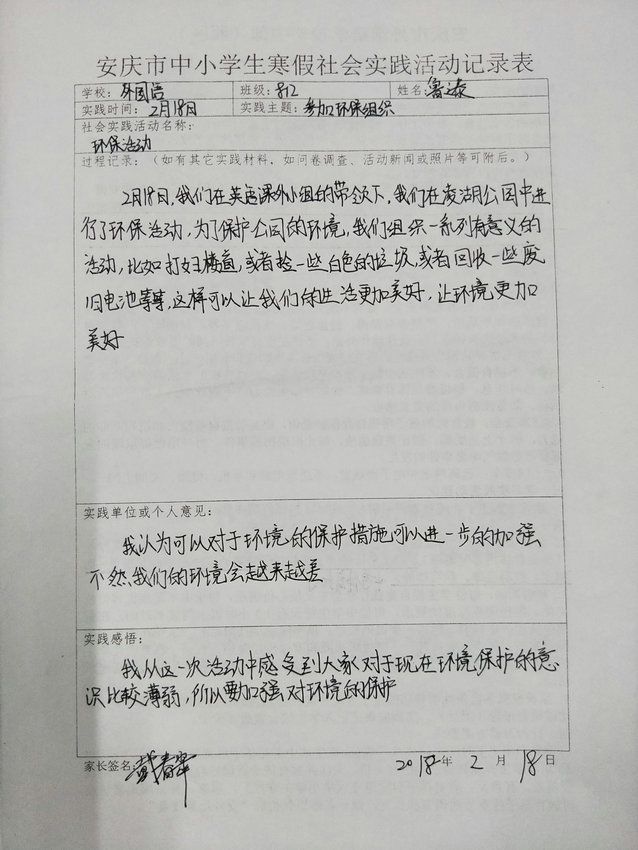 安庆市中小学生寒假社会实践活动记录表
学校：外国语 班级：812 姓名：鲁
实践时间：2月18日 实践主题：参加环保组织
社会实践活动名称：
环保活动
过程记录：（如有其它实践材料，如问卷调查、活动新闻或照片等可附后。）
2月18日，我们在英语课外小组的带领下，我们在凌湖公园中进
行了环保活动，为了保护公园的环境，我们组织一系列有意义的
活动，比如打扫楼道，或者捡一些白色的垃圾，或者回收一些废
旧电池等等，这样可以让我们的生活更加美好，让环境更加
美好
实践单位或个人意见：
我认为可以对于环境的保护措施可以进一步的加强
不然我们的环境会越来越差
实践感悟：
我从这一次活动中感受到大家对于现在环境保护的意
识比较薄弱，所以要加强对环境的保护
家长签名： 2018年 2 月 18日